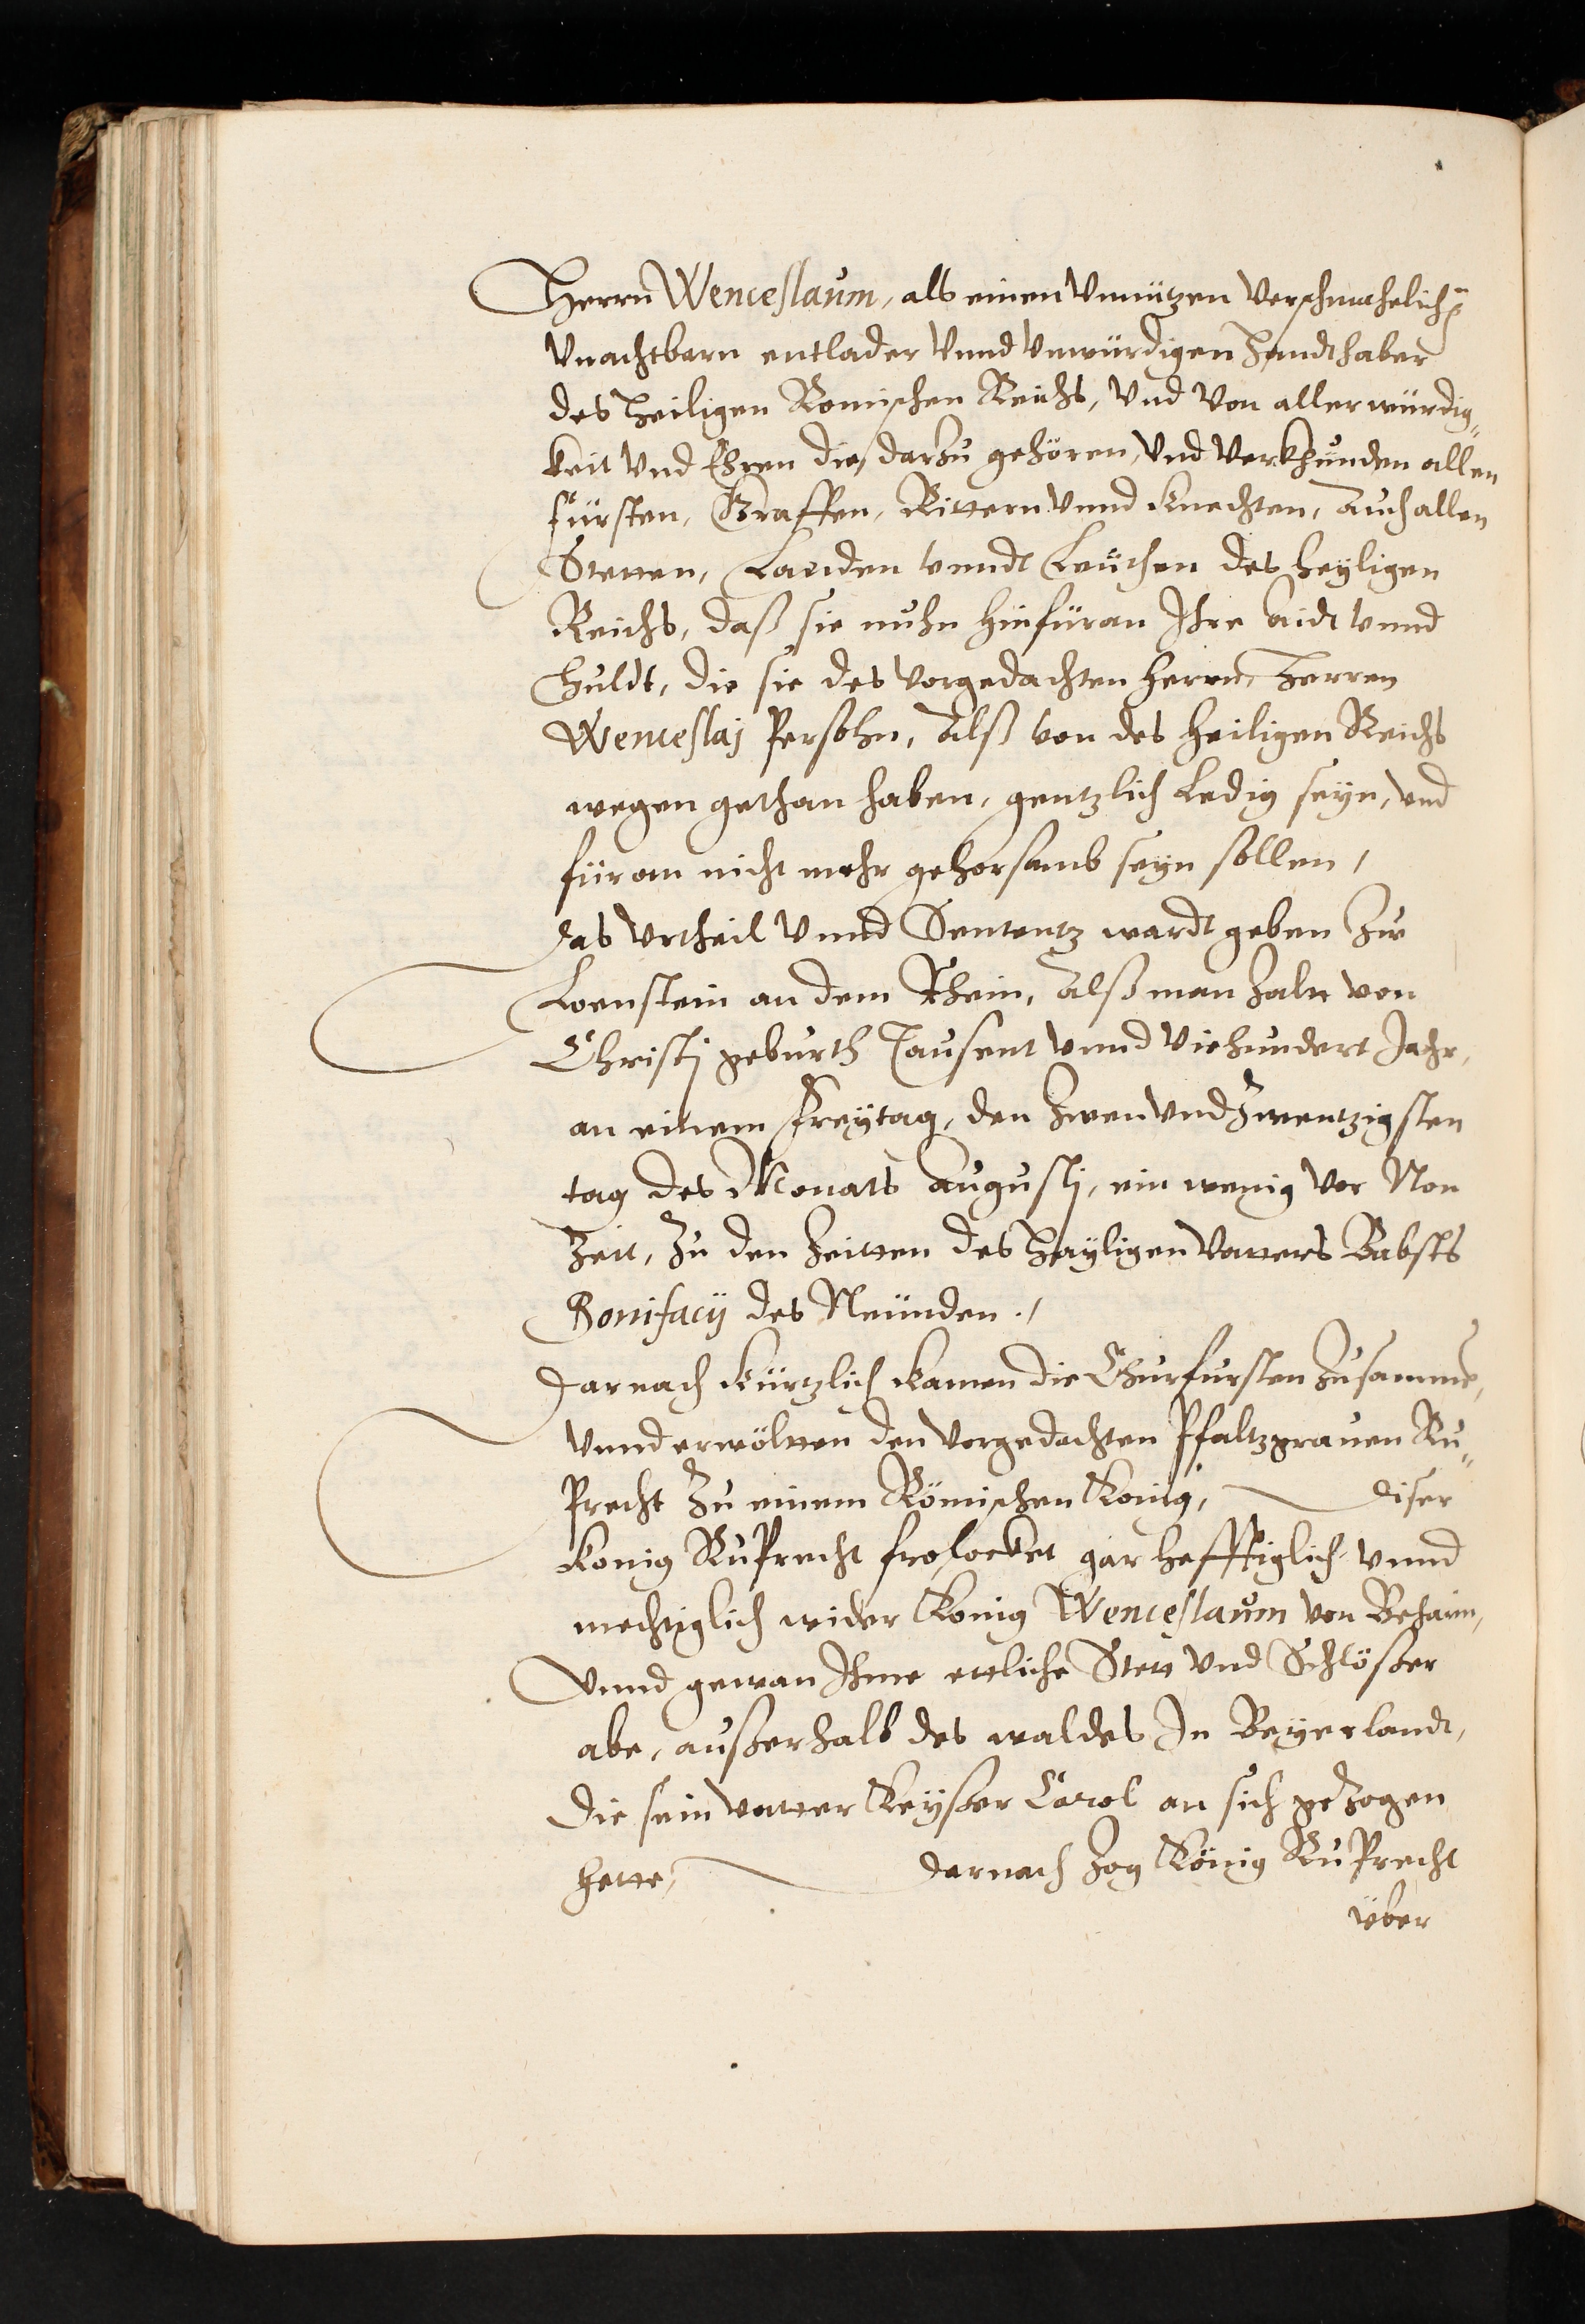 Herrn Wenceslaum, als einen Unnützen verschmehelichē
Unachtbarn entlader Vnnd Vnwürdigen Handthaber
des Heiligen Romischen Reichs, Vnd Von aller würdig„
keit Vnd Ehren die darzu gehören, Vnd Verkhunden allen
fürsten, Graffen, Rittern Vnnd Knechten, Auch allen
Stetten, Landen vnndt Leuthen des heyligen
Reichs, daß sie nuhn hinfüran Ihre Aidt vnnd
Huldt, die sie des Vorgedachten herrn, Herren
Wenceslaj Persohn, Alß von des heiligen Reichs
wegen gethan haben, gentzlich Ledig seyn, vnd
füran nicht mehr gehorsamb seyn sollen,
das Vrtheil Vnnd Sententz wardt geben Zue
Loenstein an dem Rhein, Alß man Zalt von
Christj geburth Tausent vnnd Viehundert Jahr,
an einem Freytag, den Zwen Vnd Zwentzigsten
tag des Monats Augustj, ein wenig Vor Non
Zeit, Zu den Zeitten des Hayligen Vatters Babsts
Bonifacij des Neünden ./
Darnach Kürtzlich Kamen die Churfursten Zusamme,
Vnnd erwölten den Vorgedachten Pfaltzgrauen Ru„
Precht Zu einem Römischen Konig, diser
Konig RuPrecht frolocket gar hefftiglich vnnd
mechtiglich wider Konig Wenceslaum von Behaim,
Vnnd gewan Ihme ettliche Stett Vnd Schlößer
abe, außerhalb des waldes In Beyerlandt,
Die sein Vatter Keyßer Carol an sich geZogen
hette, darnach Zog König RuPrecht
über